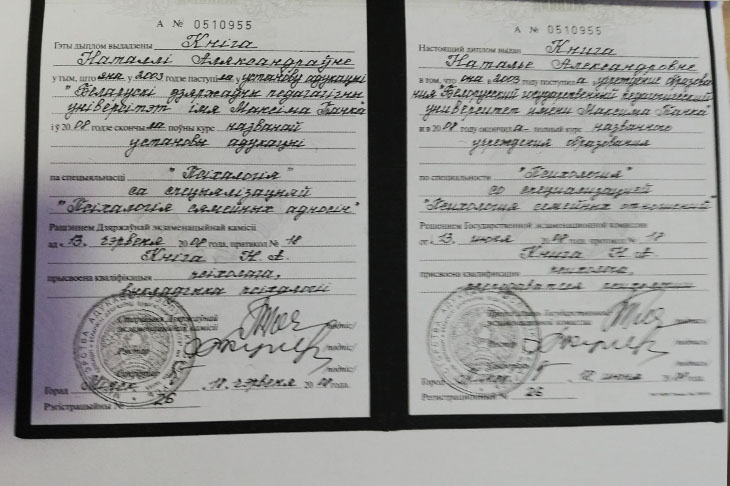 А № 0510955
Гэты дыплом выдадзены Кніга
Наталлі Аляксандраўне
у тым, што яна у 2003 годзе паступіла ў установу адукацыі
"Беларускі дзяржаўны педагагічны
універсітэт імя Максіма Танка"
і ў 2008 годзе скончыла поўны курс названай
установы адукацыі
па спецыяльнасці "Псіхалогія"
са спецыялізацыяй
"Псіхалогія сямейных адносін"
Рашэннем Дзяржаўнай экзаменацыйнай камісіі
ад «13» чэрвеня 2008 года, пратакол № 18
Кніга Н. А.
прысвоена кваліфікацыя псіхолага,
выкладчыка псіхалогіі
Старшыня Дзяржаўнай
экзаменацыйнай камісіі /подпіс/
Рэктар /подпіс/
Сакратар /подпіс/
Горад Мінск, чэрвеня 2008 года.
Рэгістрацыйны № 26
А № 0510955
Настоящий диплом выдан Книга
Наталье Александровне
в том, что она в 2003 году поступила в учреждение образова-
ния "Белорусский государственный педагогический
университет имени Максима Танка"
и в 2008 году окончила полный курс названного
учреждения образования
по специальности "Психология"
со специализацией
"Психология семейных отношений"
Решением Государственной экзаменационной комиссии
от «13» июня 2008 года, протокол № 18
Книга Н. А.
присвоена квалификация психолога,
преподавателя психологии
Государственной
экзаменационной комиссии /подпись/
/подпись/
/подпись/
Город июня 2008 года.
Регистрационный № 26